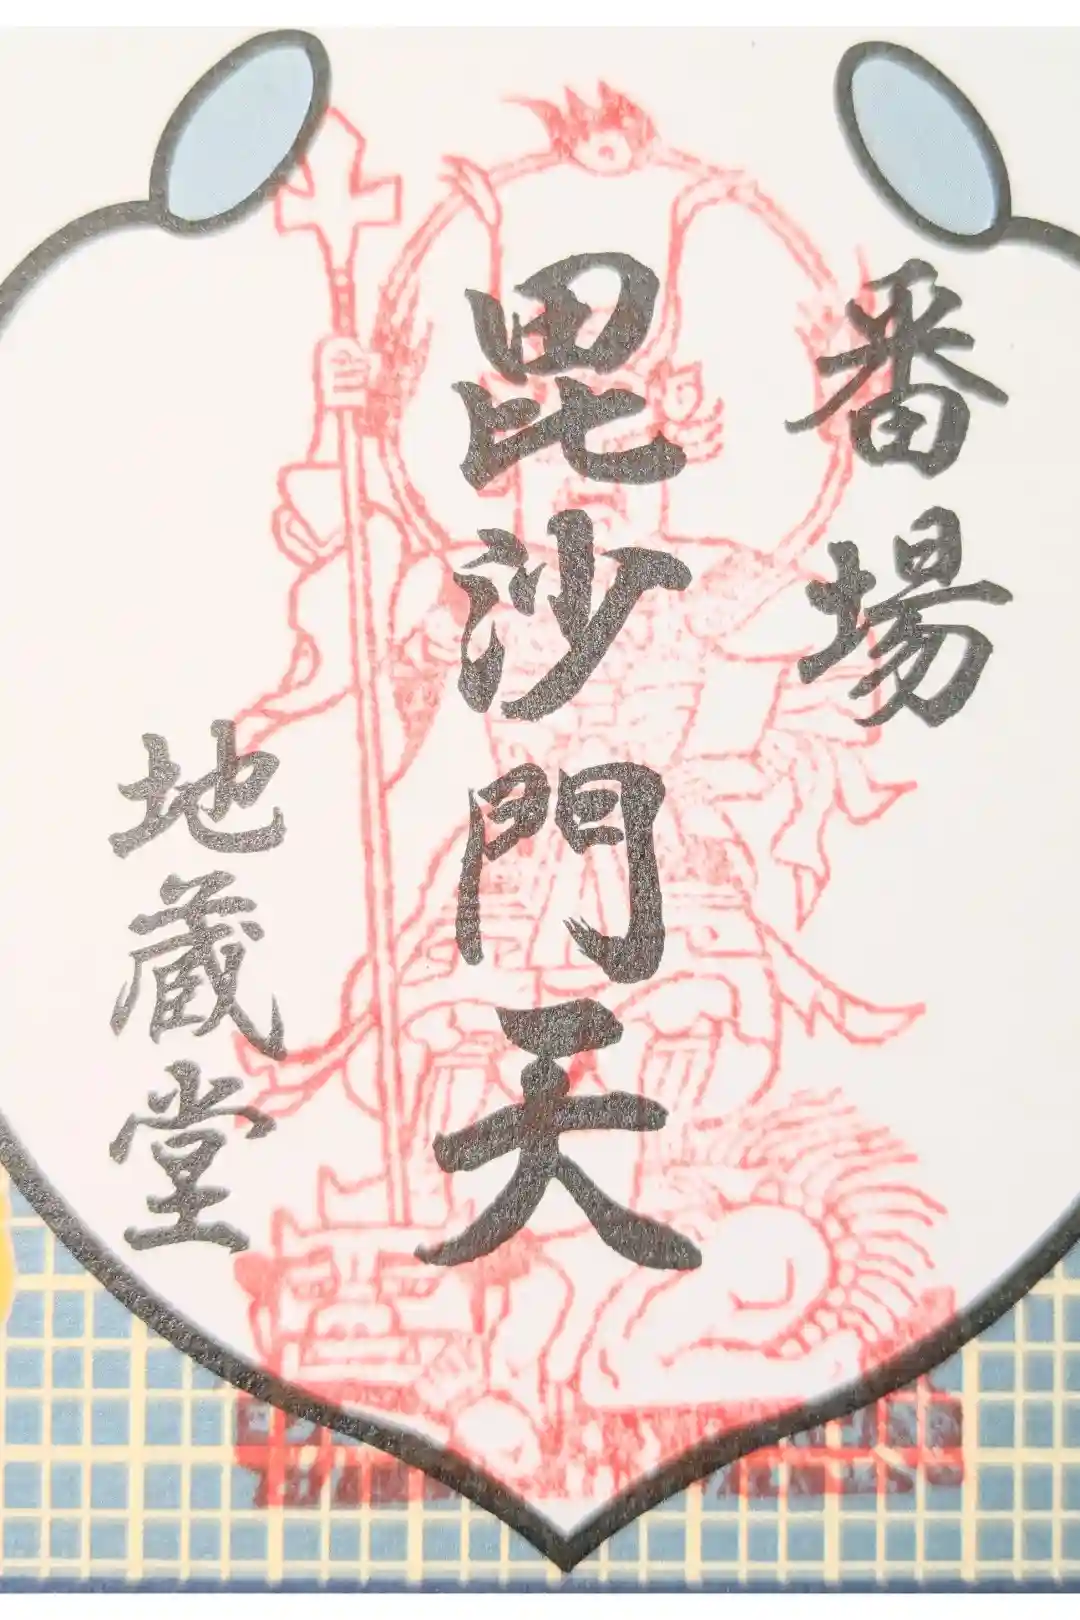 番場
毘沙門天
地蔵堂